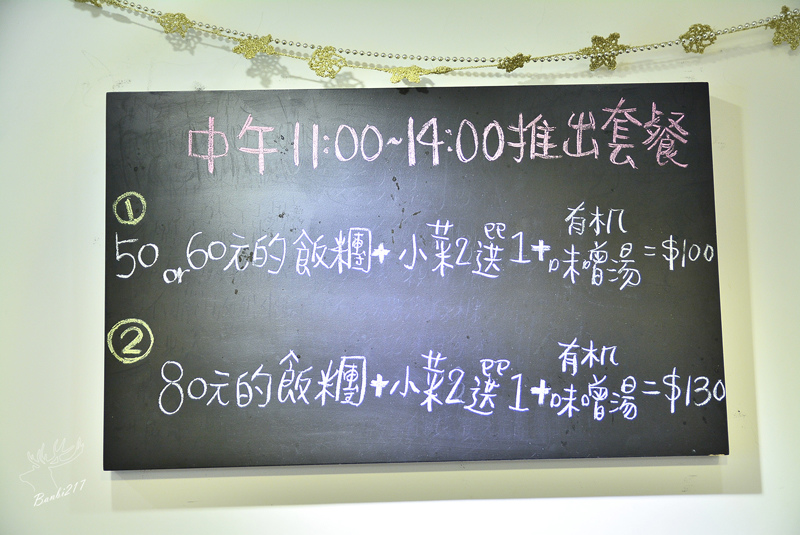 中午11:00~14:00推出套餐
①
50or60元的飯糰+小菜2選1+有机味噌湯=$100
②
80元的飯糰+小菜2選1+有机味噌湯=$130
Bunbi217